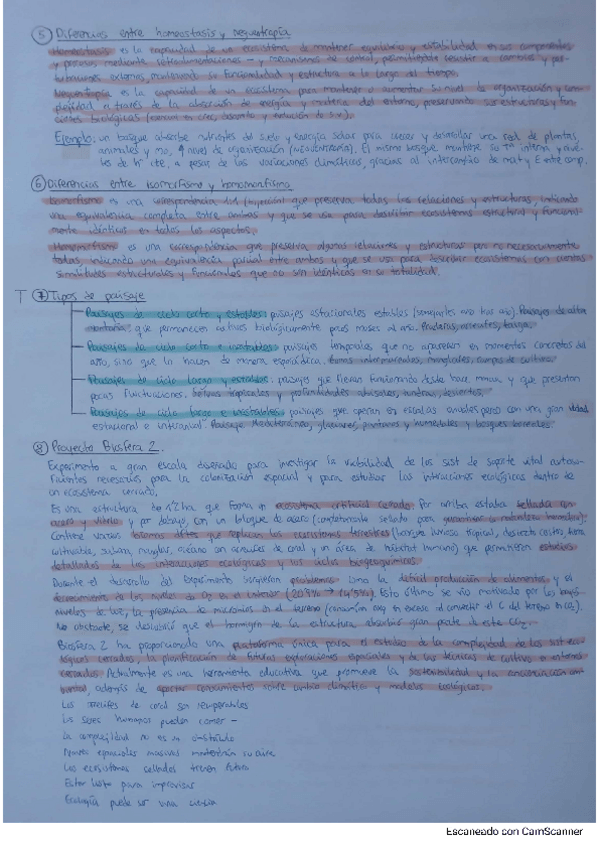 ⑤ Diferencias entre homeostasis y neguentropía
Homeostasis es la capacidad de un ecosistema de mantener equilibrio y estabilidad en sus componentes
y procesos mediante retroalimentaciones - y mecanismos de control, permitiéndole resistir a cambios y per-
turbaciones externos, manteniendo su funcionalidad y estructura a lo largo del tiempo.
Neguentropía es la capacidad de un ecosistema para mantener o aumentar su nivel de organización y com-
plejidad a través de la absorción de energía y materia del entorno, preservando sus estructuras y fun-
ciones biológicas
Ejemplo: un bosque absorbe nutrientes del suelo y energía solar para crecer y desarrollar una red de plantas,
animales y mo, ↑ niveles de organización (neguentropía). El mismo bosque mantiene su Tª interna y nive-
les de h cte, a pesar de las variaciones climáticas, gracias al intercambio de mat y E entre comp.
⑥ Diferencias entre isomorfismo y homomorfismo
Isomorfismo es una correspondencia que preserva todas las relaciones y estructuras, indicando
una equivalencia completa entre ambas y que se usa para describir ecosistemas estructural y funcional-
mente idénticos en todos los aspectos.
Homomorfismo es una correspondencia que preserva algunas relaciones y estructuras pero no necesariamente
todas indicando una equivalencia parcial entre ambos y que se usa para describir ecosistemas con ciertas
similitudes estructurales y funcionales que no son idénticas en su totalidad.
T ⑦ Tipos de paisaje
Paisajes de ciclo corto y estables: paisajes estacionales estables (semejantes año tras año). Paisajes de alta
montaña: que permanecen activos biológicamente pocos meses al año. Praderas, taiga.
Paisajes de ciclo corto e inestables: paisajes temporales que no aparecen en momentos concretos del
año, sino que lo hacen de manera esporádica. Zonas intermareales, manglares, campos de cultivo.
Paisajes de ciclo largo y estables: paisajes que llevan funcionando desde hace mucho y que presentan
pocas fluctuaciones. Selvas tropicales y profundidades abisales, tundra, desiertos.
Paisajes de ciclo largo e inestables: paisajes que operan en escalas anuales pero con una gran
estacional e interanual. Paisaje Mediterráneo, glaciares, pantanos y humedales y bosques boreales.
⑧ Proyecto Biosfera 2.
Experimento a gran escala diseñado para investigar la viabilidad de los sist de soporte vital
necesarios para la colonización espacial y para estudiar las interacciones ecológicas dentro de
un ecosistema cerrado.
Es una estructura de 1'2 ha que forma un ecosistema artificial cerrado. Por arriba estaba sellada con
acero y vidrio y por debajo, con un bloque de acero (completamente sellado para
Contiene varios biomas que replican los ecosistemas terrestres (bosque lluvioso tropical, desierto costero, tierra
cultivable, sabana, manglar, océano con arrecifes de coral y un área de hábitat humano) que permitieron estudios
detallados de las interacciones ecológicas y los ciclos biogeoquímicos.
Durante el desarrollo del experimento surgieron problemas como la difícil producción de alimentos y el
decrecimiento de los niveles de O₂ en el interior (20'9% → 14'5%). Esto último se vio motivado por los bajos
niveles de luz, la presencia de microbios en el terreno (consumían oxíg en exceso al convertir el C del terreno en CO₂).
No obstante, se descubrió que el hormigón de la estructura absorbió gran parte de este CO₂.
Biosfera 2 ha proporcionado una plataforma única para el estudio de la complejidad de los sist eco-
lógicos cerrados, la planificación de futuras exploraciones espaciales y de las técnicas de cultivo en entornos
cerrados. Actualmente es una herramienta educativa que promueve la sostenibilidad y la concienciación am-
biental, además de aportar conocimientos sobre cambio climático y modelos ecológicos.
Los arrecifes de coral son recuperables
Los seres humanos pueden comer -
La complejidad no es un obstáculo
Naves espaciales masivas mantendrían su aire
Los ecosistemas sellados tienen futuro
Estar listo para improvisar
Ecología puede ser una ciencia
Escaneado con CamScanner